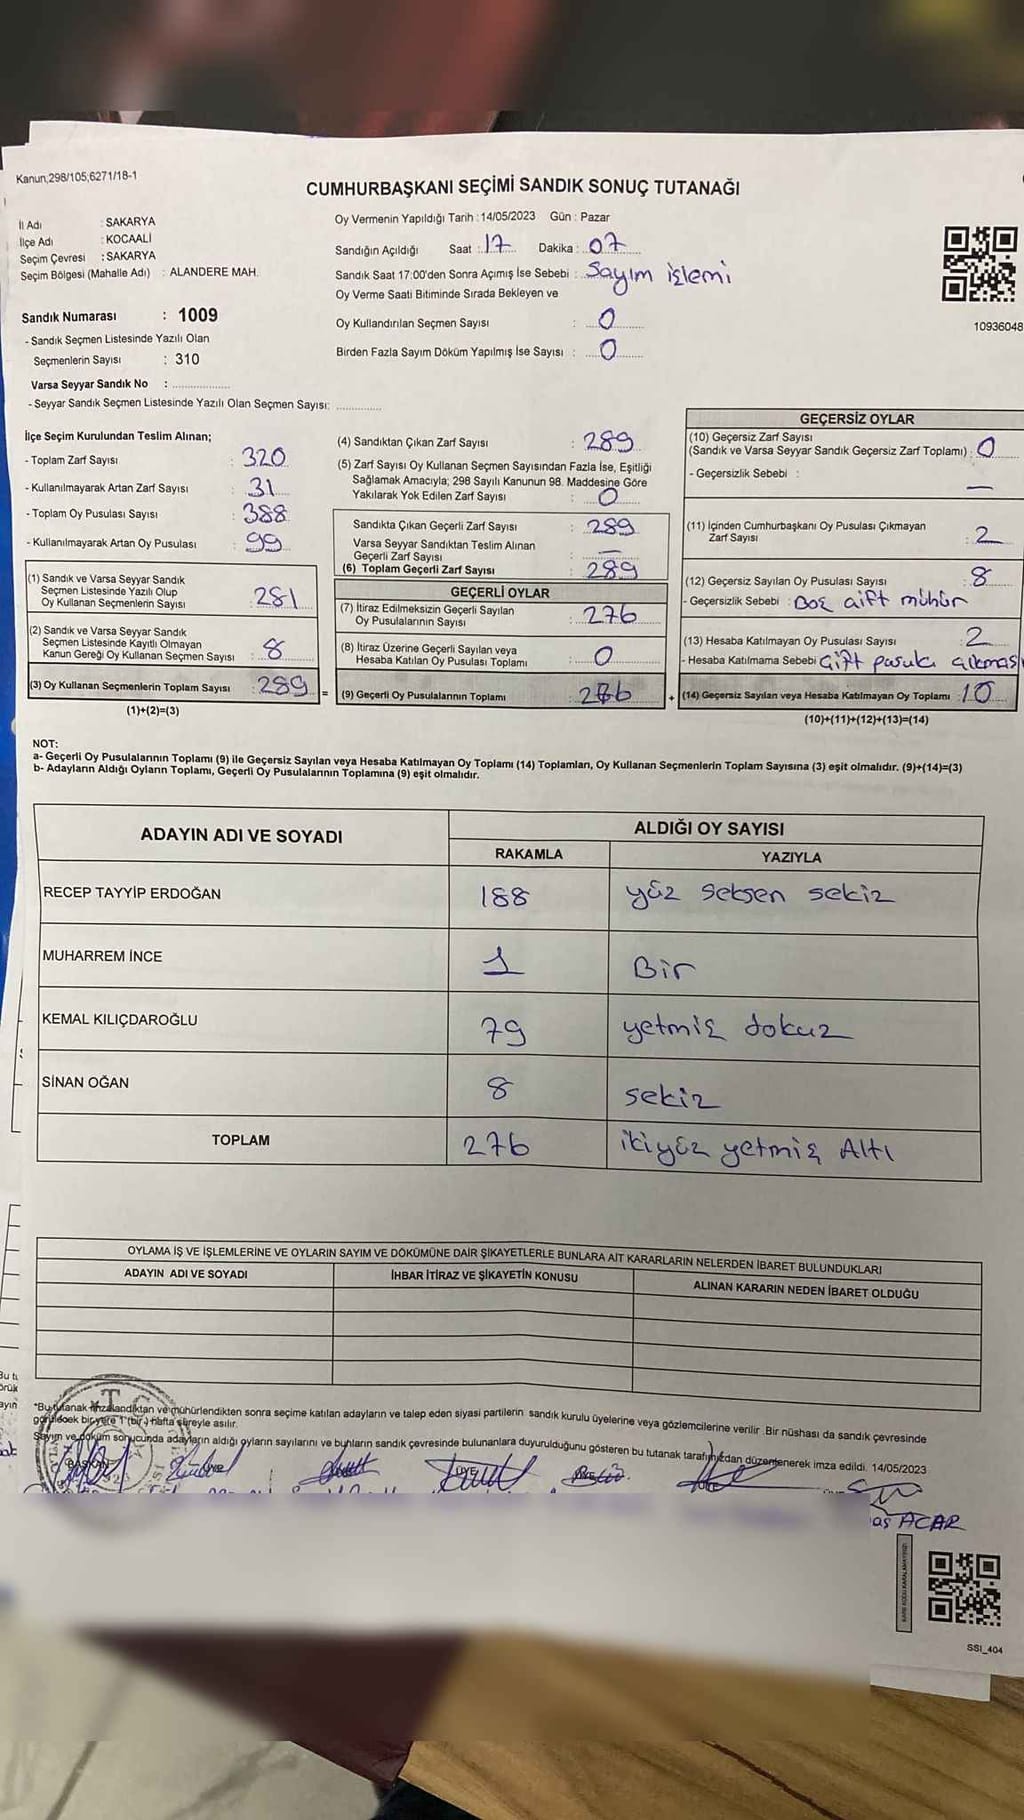 Kanun;298/105;6271/18-1
CUMHURBAŞKANI SEÇİMİ SANDIK SONUÇ TUTANAĞI
İl Adı : SAKARYA
İlçe Adı : KOCAALİ
Seçim Çevresi : SAKARYA
Seçim Bölgesi (Mahalle Adı) : ALANDERE MAH.
Sandık Numarası : 1009
- Sandık Seçmen Listesinde Yazılı Olan
Seçmenlerin Sayısı : 310
Varsa Seyyar Sandık No : ................
- Seyyar Sandık Seçmen Listesinde Yazılı Olan Seçmen Sayısı: ............
Oy Vermenin Yapıldığı Tarih : 14/05/2023 Gün : Pazar
Sandığın Açıldığı Saat : 17 Dakika : 07
Sandık Saat 17:00'den Sonra Açımış İse Sebebi : Sayım işlemi
Oy Verme Saati Bitiminde Sırada Bekleyen ve
Oy Kullandırılan Seçmen Sayısı : 0
Birden Fazla Sayım Döküm Yapılmış İse Sayısı : 0
10936048
İlçe Seçim Kurulundan Teslim Alınan;
- Toplam Zarf Sayısı : 320
- Kullanılmayarak Artan Zarf Sayısı : 31
- Toplam Oy Pusulası Sayısı : 388
- Kullanılmayarak Artan Oy Pusulası : 99
(1) Sandık ve Varsa Seyyar Sandık
Seçmen Listesinde Yazılı Olup
Oy Kullanan Seçmenlerin Sayısı : 281
(2) Sandık ve Varsa Seyyar Sandık
Seçmen Listesinde Kayıtlı Olmayan
Kanun Gereği Oy Kullanan Seçmen Sayısı : 8
(3) Oy Kullanan Seçmenlerin Toplam Sayısı : 289 =
(1)+(2)=(3)
(4) Sandıktan Çıkan Zarf Sayısı : 289
(5) Zarf Sayısı Oy Kullanan Seçmen Sayısından Fazla İse, Eşitliği
Sağlamak Amacıyla; 298 Sayılı Kanunun 98. Maddesine Göre
Yakılarak Yok Edilen Zarf Sayısı : 0
Sandıkta Çıkan Geçerli Zarf Sayısı : 289
Varsa Seyyar Sandıktan Teslim Alınan
Geçerli Zarf Sayısı : —
(6) Toplam Geçerli Zarf Sayısı : 289
GEÇERLİ OYLAR
(7) İtiraz Edilmeksizin Geçerli Sayılan
Oy Pusulalarının Sayısı : 276
(8) İtiraz Üzerine Geçerli Sayılan veya
Hesaba Katılan Oy Pusulası Toplamı : 0
(9) Geçerli Oy Pusulalarının Toplamı : 276 +
GEÇERSİZ OYLAR
(10) Geçersiz Zarf Sayısı
(Sandık ve Varsa Seyyar Sandık Geçersiz Zarf Toplamı) : 0
- Geçersizlik Sebebi : —
(11) İçinden Cumhurbaşkanı Oy Pusulası Çıkmayan
Zarf Sayısı : 2
(12) Geçersiz Sayılan Oy Pusulası Sayısı : 8
- Geçersizlik Sebebi : Boş çift mühür
(13) Hesaba Katılmayan Oy Pusulası Sayısı : 2
- Hesaba Katılmama Sebebi Çift pusula çıkması
(14) Geçersiz Sayılan veya Hesaba Katılmayan Oy Toplamı : 10
(10)+(11)+(12)+(13)=(14)
NOT:
a- Geçerli Oy Pusulalarının Toplamı (9) ile Geçersiz Sayılan veya Hesaba Katılmayan Oy Toplamı (14) Toplamları, Oy Kullanan Seçmenlerin Toplam Sayısına (3) eşit olmalıdır. (9)+(14)=(3)
b- Adayların Aldığı Oyların Toplamı, Geçerli Oy Pusulalarının Toplamına (9) eşit olmalıdır.
ADAYIN ADI VE SOYADI ALDIĞI OY SAYISI
RAKAMLA YAZIYLA
RECEP TAYYİP ERDOĞAN 188 yüz seksen sekiz
MUHARREM İNCE 1 Bir
KEMAL KILIÇDAROĞLU 79 yetmiş dokuz
SİNAN OĞAN 8 sekiz
TOPLAM 276 ikiyüz yetmiş Altı
OYLAMA İŞ VE İŞLEMLERİNE VE OYLARIN SAYIM VE DÖKÜMÜNE DAİR ŞİKAYETLERLE BUNLARA AİT KARARLARIN NELERDEN İBARET BULUNDUKLARI
ADAYIN ADI VE SOYADI İHBAR İTİRAZ VE ŞİKAYETİN KONUSU ALINAN KARARIN NEDEN İBARET OLDUĞU
*Bu tutanak imzalandıktan ve mühürlendikten sonra seçime katılan adayların ve talep eden siyasi partilerin sandık kurulu üyelerine veya gözlemcilerine verilir .Bir nüshası da sandık çevresinde
görülecek bir yere 1 (bir ) hafta süreyle asılır.
Sayım ve döküm sonucunda adayların aldığı oyların sayılarını ve bunların sandık çevresinde bulunanlara duyurulduğunu gösteren bu tutanak tarafımızdan düzenlenerek imza edildi. 14/05/2023
T.C.
BAŞKAN
ÜYE
ACAR
SSI_404